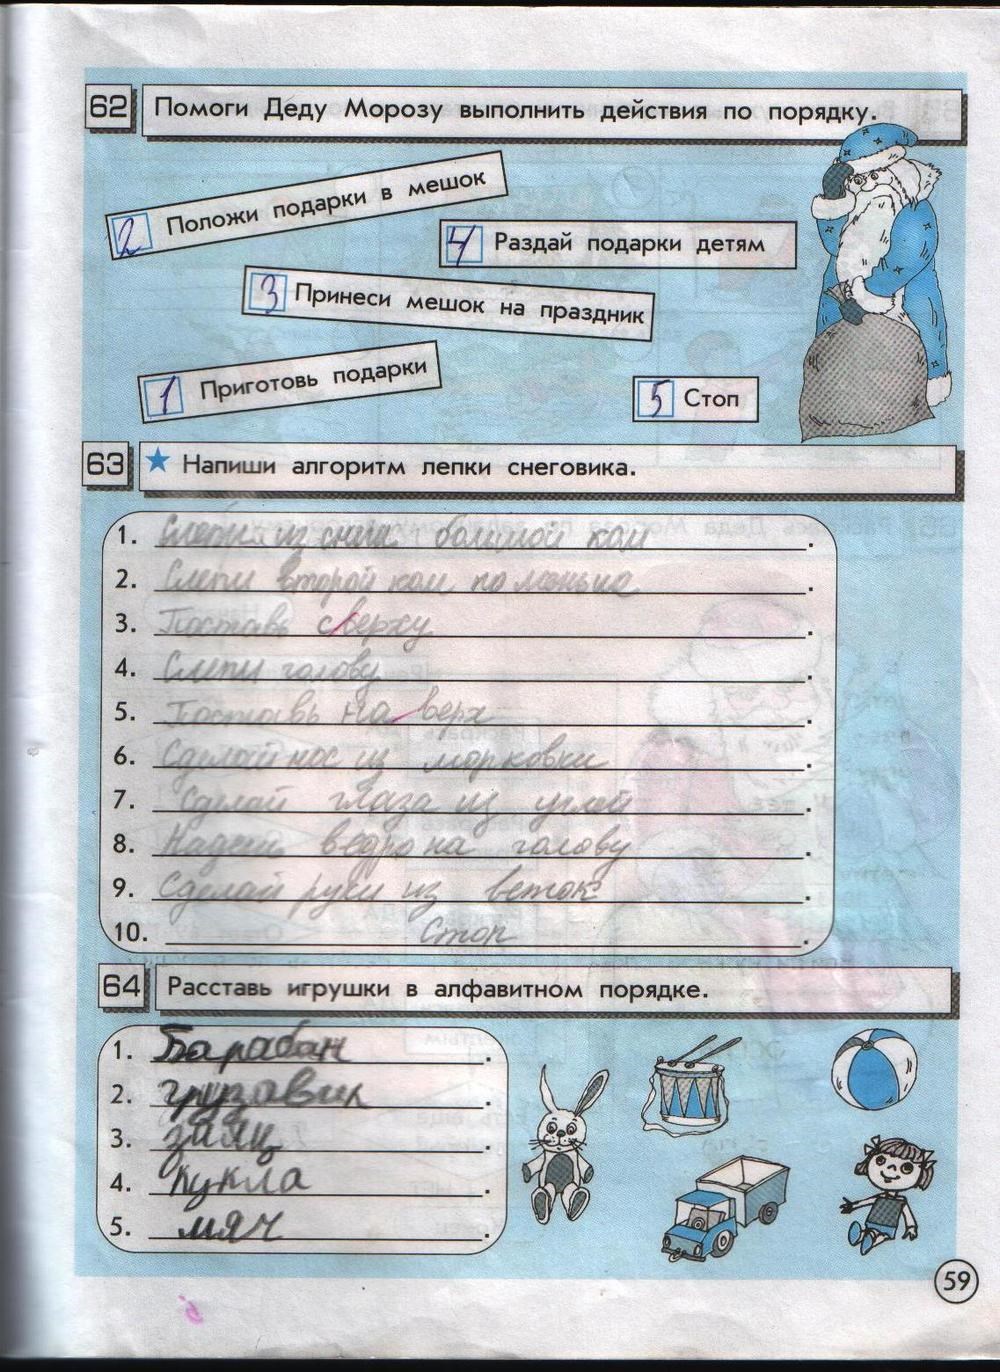 62 Помоги Деду Морозу выполнить действия по порядку.
2 Положи подарки в мешок
4 Раздай подарки детям
3 Принеси мешок на праздник
1 Приготовь подарки
5 Стоп
63 ★ Напиши алгоритм лепки снеговика.
1. Слепи из снега большой ком.
2. Слепи второй ком поменьше.
3. Поставь сверху.
4. Слепи голову.
5. Поставь на верх.
6. Сделай нос из морковки.
7. Сделай глаза из углей.
8. Надень ведро на голову.
9. Сделай руки из веток.
10. Стоп.
64 Расставь игрушки в алфавитном порядке.
1. Барабан.
2. грузавик.
3. заяц.
4. кукла.
5. мяч.
59